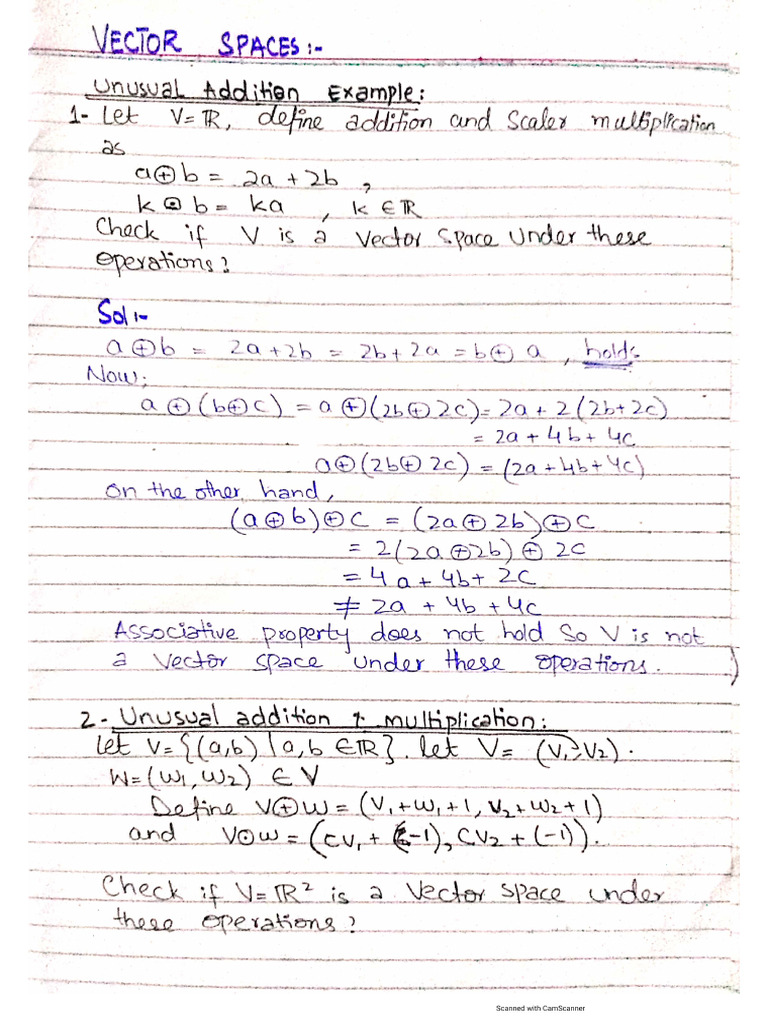 VECTOR SPACES:-
Unusual Addition Example:
1- Let V=ℝ, define addition and Scaler multiplication
as
a⊕b = 2a+2b ,
k⊙b = ka , k∈ℝ
Check if V is a Vector Space under these
operations?
Sol:-
a⊕b = 2a+2b = 2b+2a = b⊕a , holds
Now;
a⊕(b⊕c) = a⊕(2b⊕2c) = 2a+2(2b+2c)
= 2a+4b+4c
a⊕(2b⊕2c) = (2a+4b+4c)
on the other hand,
(a⊕b)⊕c = (2a⊕2b)⊕c
= 2(2a⊕2b)⊕2c
= 4a+4b+2c
≠ 2a+4b+4c
Associative property does not hold So V is not
a vector space under these operations.
2- Unusual addition & multiplication:
let V={(a,b) | a,b ∈ℝ}. let V= (V₁,V₂).
W=(w₁,w₂) ∈ V
Define V⊕W=(V₁+w₁+1, V₂+w₂+1)
and V⊙w=(cv₁+(-1), cv₂+(-1)).
Check if V=ℝ² is a Vector space under
these operations?
Scanned with CamScanner